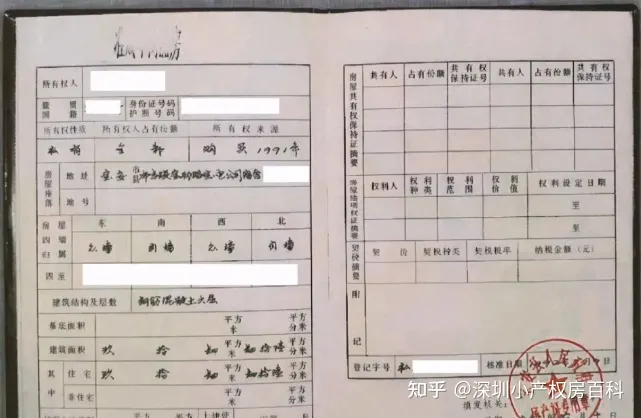 所有权人
籍贯
国籍
身份证号码
护照号码
所有权性质 所有权人占有份额 所有权来源
私有 全部 购买1991年
房屋座落
地址 宝安 市 县
地号
房屋四墙归属
东 南 西 北
四至
建筑结构及层数 钢筋混凝土六层
基底面积 平方米 平方分米
建筑面积 玖 拾 平方米 平方分米
其中
住宅 玖 拾 平方米 平方分米
非住宅 平方 平方
房屋共有权保持证摘要
共有人 占有份额 共有权保持证号 共有人 占有份额 共有权保持证号
房屋他项权证摘要
权利人 权利种类 权利范围 权利价值 权利设定日期
至
至
契税摘要
契价 契税种类 契税税率 纳税金额(元)
附记
登记字号 私 核准日期
填发机关
知乎 @深圳小产权房百科